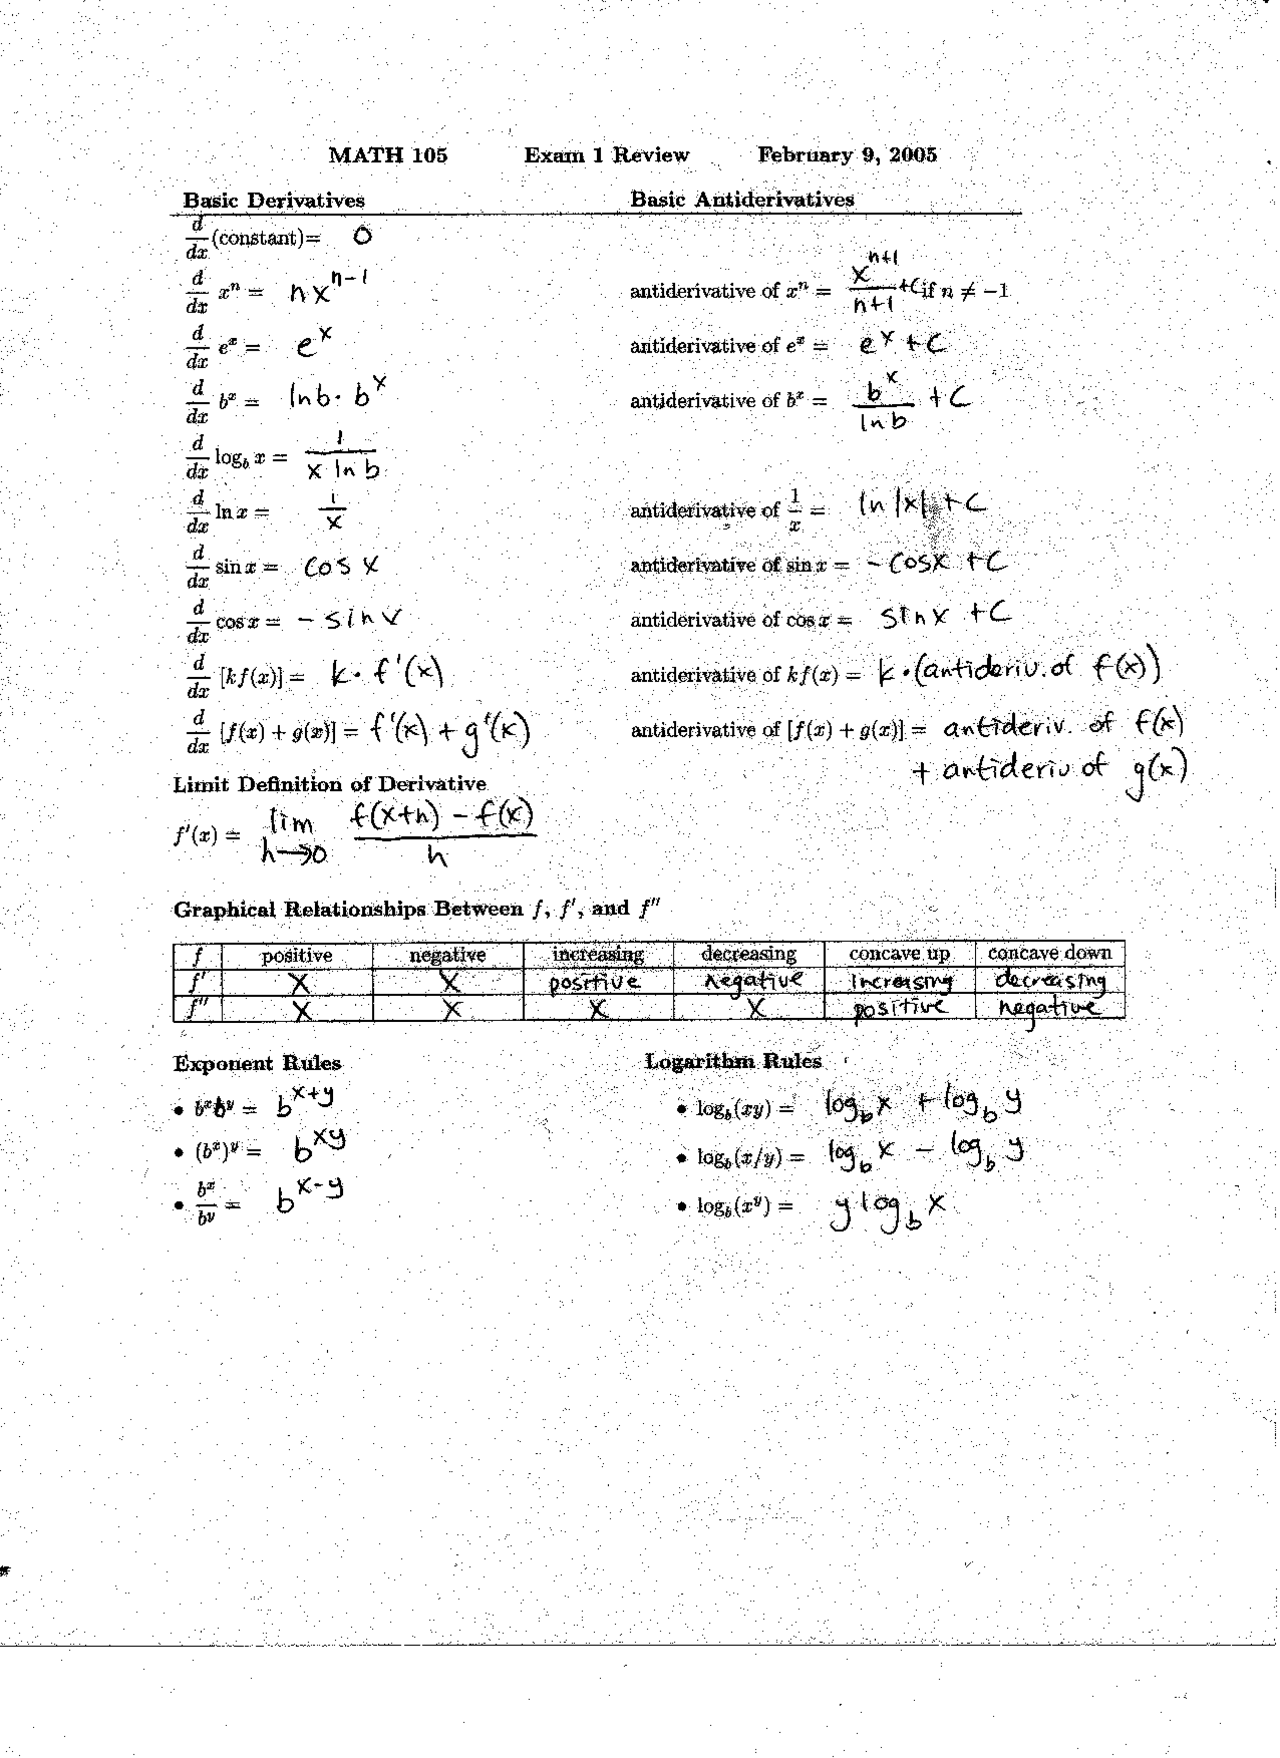 MATH 105 Exam 1 Review February 9, 2005
Basic Derivatives Basic Antiderivatives
d/dx (constant) = 0
d/dx xⁿ = nxⁿ⁻¹ antiderivative of xⁿ = xⁿ⁺¹/(n+1) + C if n ≠ −1
d/dx eˣ = eˣ antiderivative of eˣ = eˣ + C
d/dx bˣ = ln b · bˣ antiderivative of bˣ = bˣ/ln b + C
d/dx log_b x = 1/(x ln b)
d/dx ln x = 1/x antiderivative of 1/x = ln |x| + C
d/dx sin x = cos x antiderivative of sin x = − cos x + C
d/dx cos x = − sin x antiderivative of cos x = sin x + C
d/dx [kf(x)] = k · f'(x) antiderivative of kf(x) = k · (antideriv. of f(x))
d/dx [f(x) + g(x)] = f'(x) + g'(x) antiderivative of [f(x) + g(x)] = antideriv. of f(x)
+ antideriv of g(x)
Limit Definition of Derivative
f'(x) = lim h→0 (f(x+h) − f(x))/h
Graphical Relationships Between f, f', and f''
f positive negative increasing decreasing concave up concave down
f' X X positive negative increasing decreasing
f'' X X X X positive negative
Exponent Rules Logarithm Rules
• bˣbʸ = b^(x+y) • log_b(xy) = log_b x + log_b y
• (bˣ)ʸ = b^(xy) • log_b(x/y) = log_b x − log_b y
• bˣ/bʸ = b^(x−y) • log_b(xʸ) = y log_b x